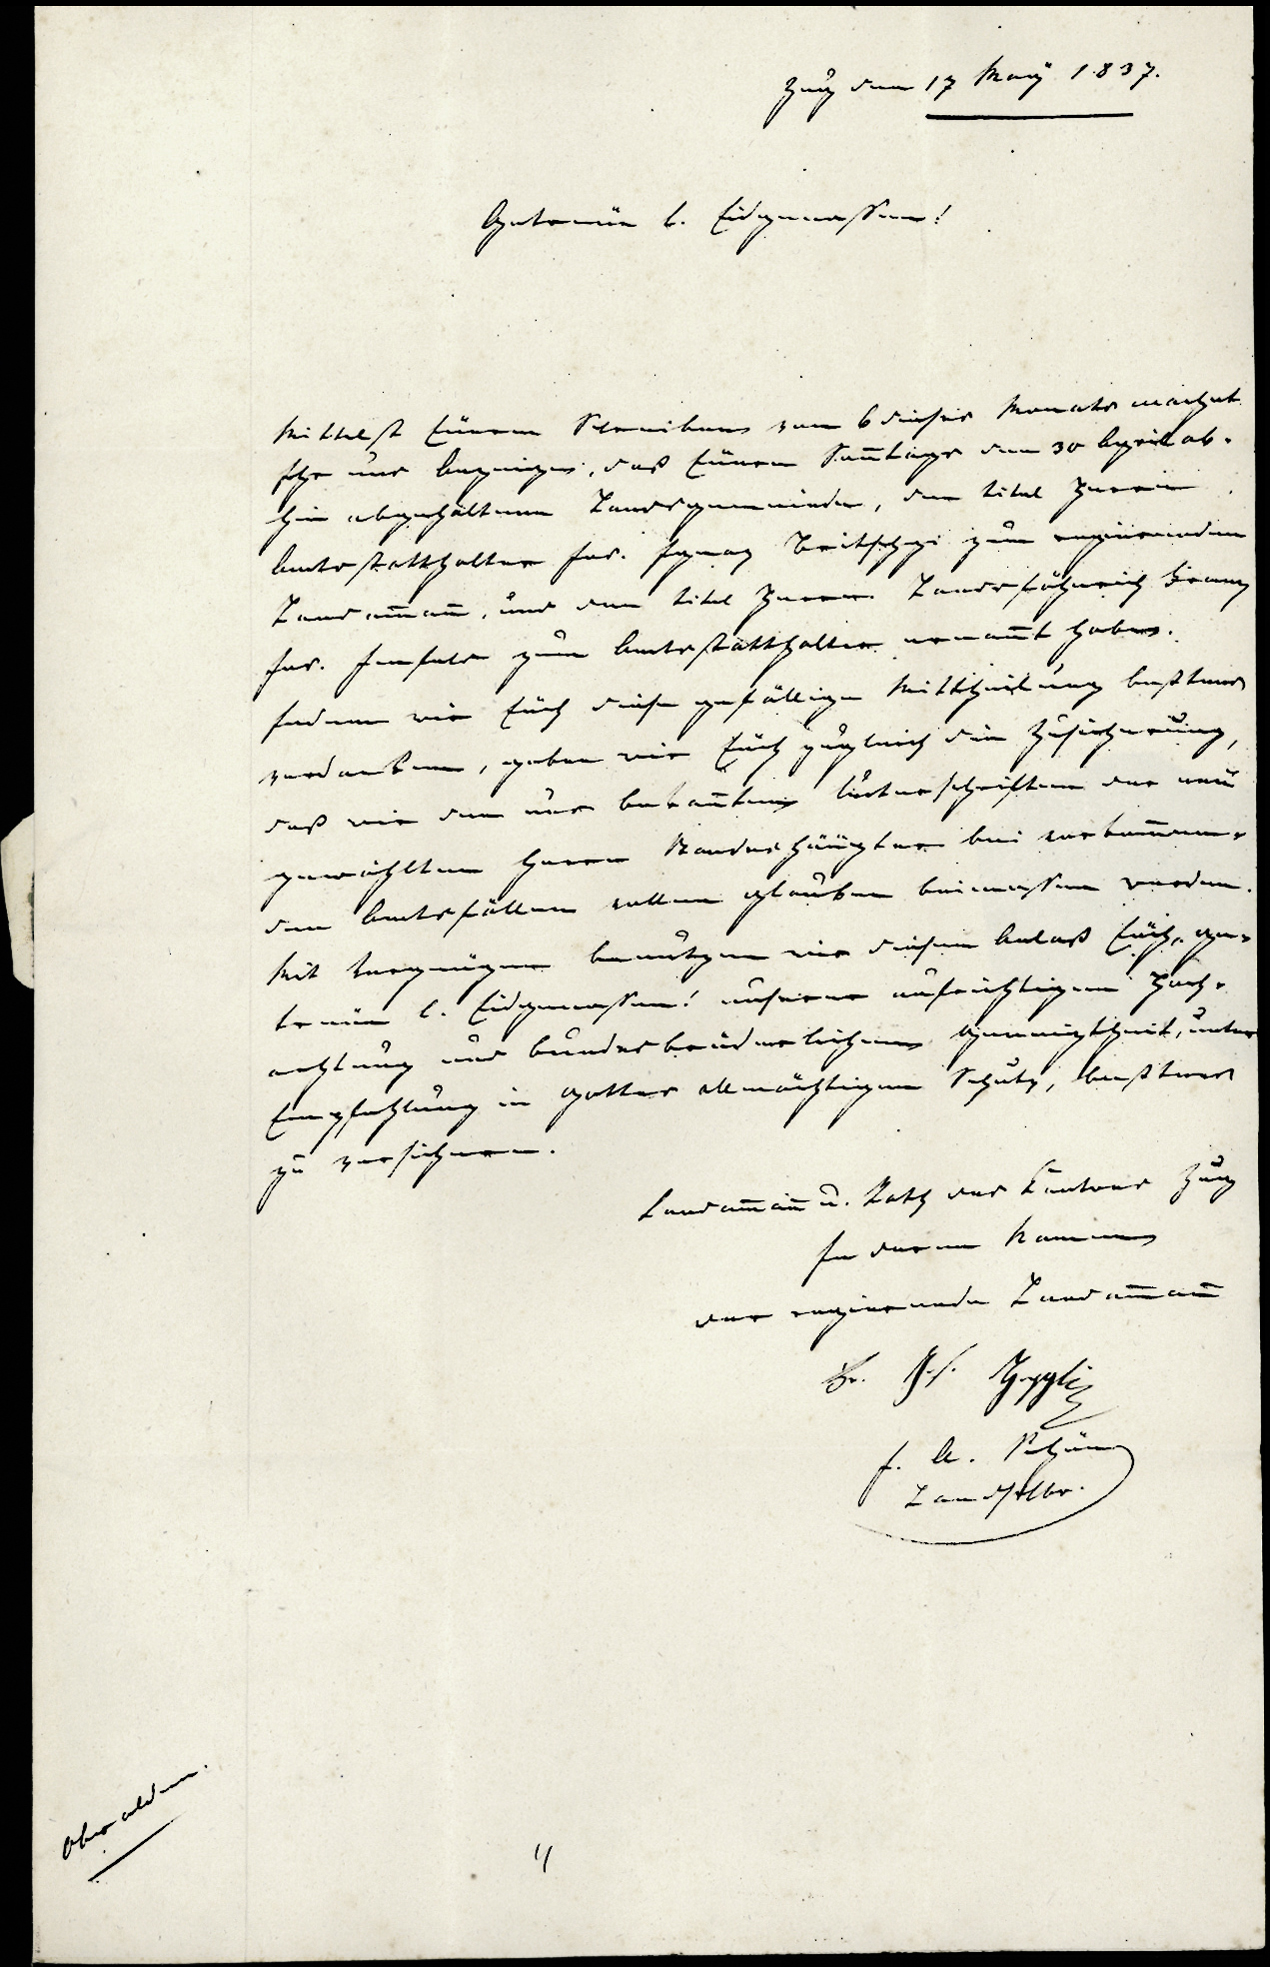 Zug den 17 May 1837.
Getreüe l. Eidgenossen!
Mittelst Eüerem Schreiben vom 6 dieses Monats machet
Ihr uns bezeigen, daß Eüere Sonntags den 30 April ab-
hin abgehaltene Landsgemeinde, den titel Herrn
Amtsstatthalter Jos. Ignaz Britschgi zum regierenden
Landamann, und den titel Herrn Landsfähnrich Franz
Jos. zum Amtsstatthalter ernannt haben.
Indem wir Eüch diese gefällige Mittheilung bestens
verdanken, geben wir Eüch zugleich die Zusicherung,
daß wir den uns bekannten Unterschriften der neü
gewählten Herren Standeshäüpter bei vorkommen-
den Amtsfällen vollen glauben beimessen werden.
Mit Vergnügen benutzen wir diesen Anlaß Eüch, ge-
treüe l. Eidgenossen! unserer aufrichtigen Hoch-
achtung und bundesbrüderlichen Geneigtheit, unter
Empfehlung in Gottes allmächtigen Schutz, bestens
zu versichern.
Landammann u. Rath des Kantons Zug
In deren Namen
der regierende Landammann
Jos. Hegglin
Landschbr.
Obwalden.